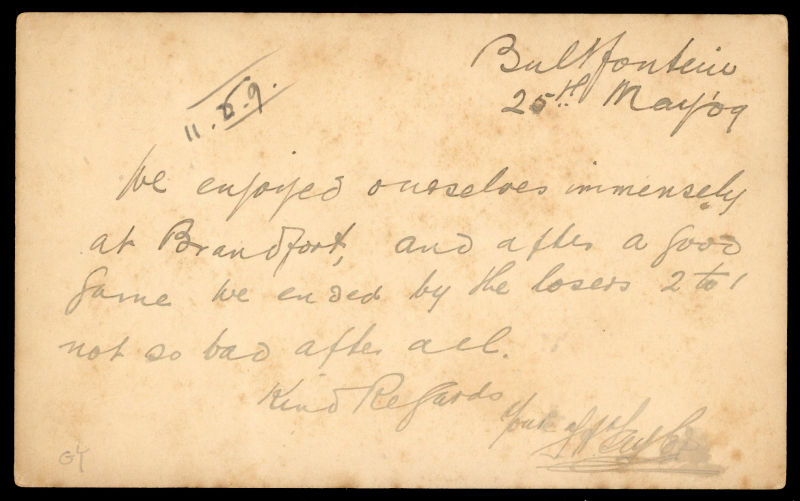 Bultfontein
25th May/09
11.5.9.
We enjoyed ourselves immensely
at Brandfort, and after a good
game we ended by the losers 2 to 1
not so bad after all.
Kind Regards
GY